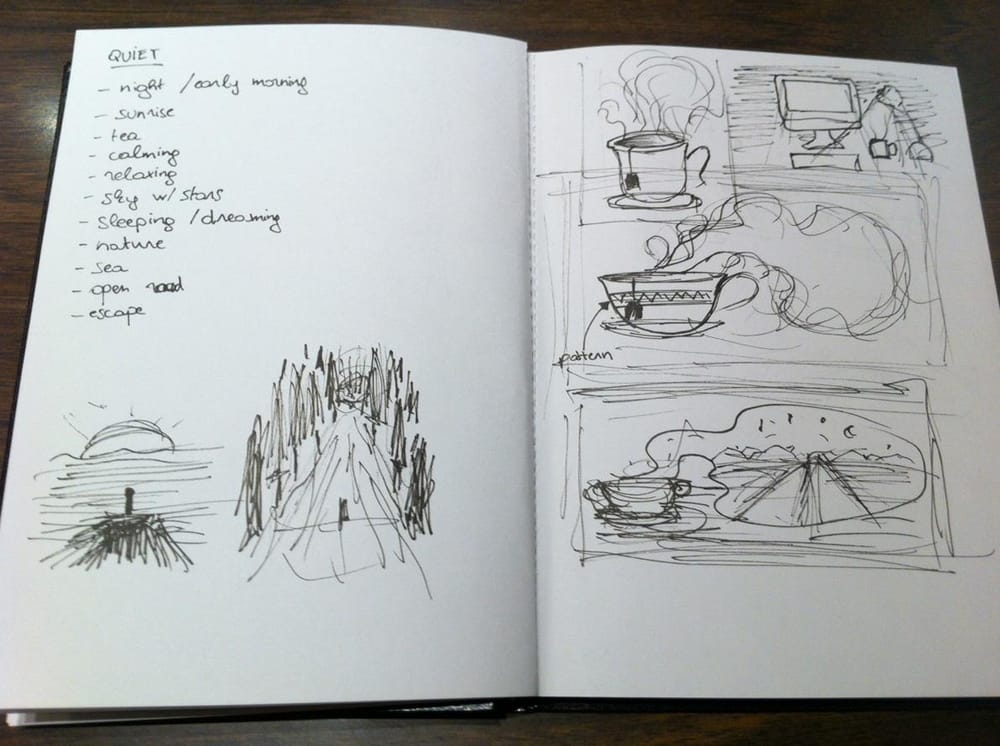 QUIET
- night / early morning
- sunrise
- tea
- calming
- relaxing
- sky w/ stars
- sleeping / dreaming
- nature
- sea
- open road
- escape
pattern